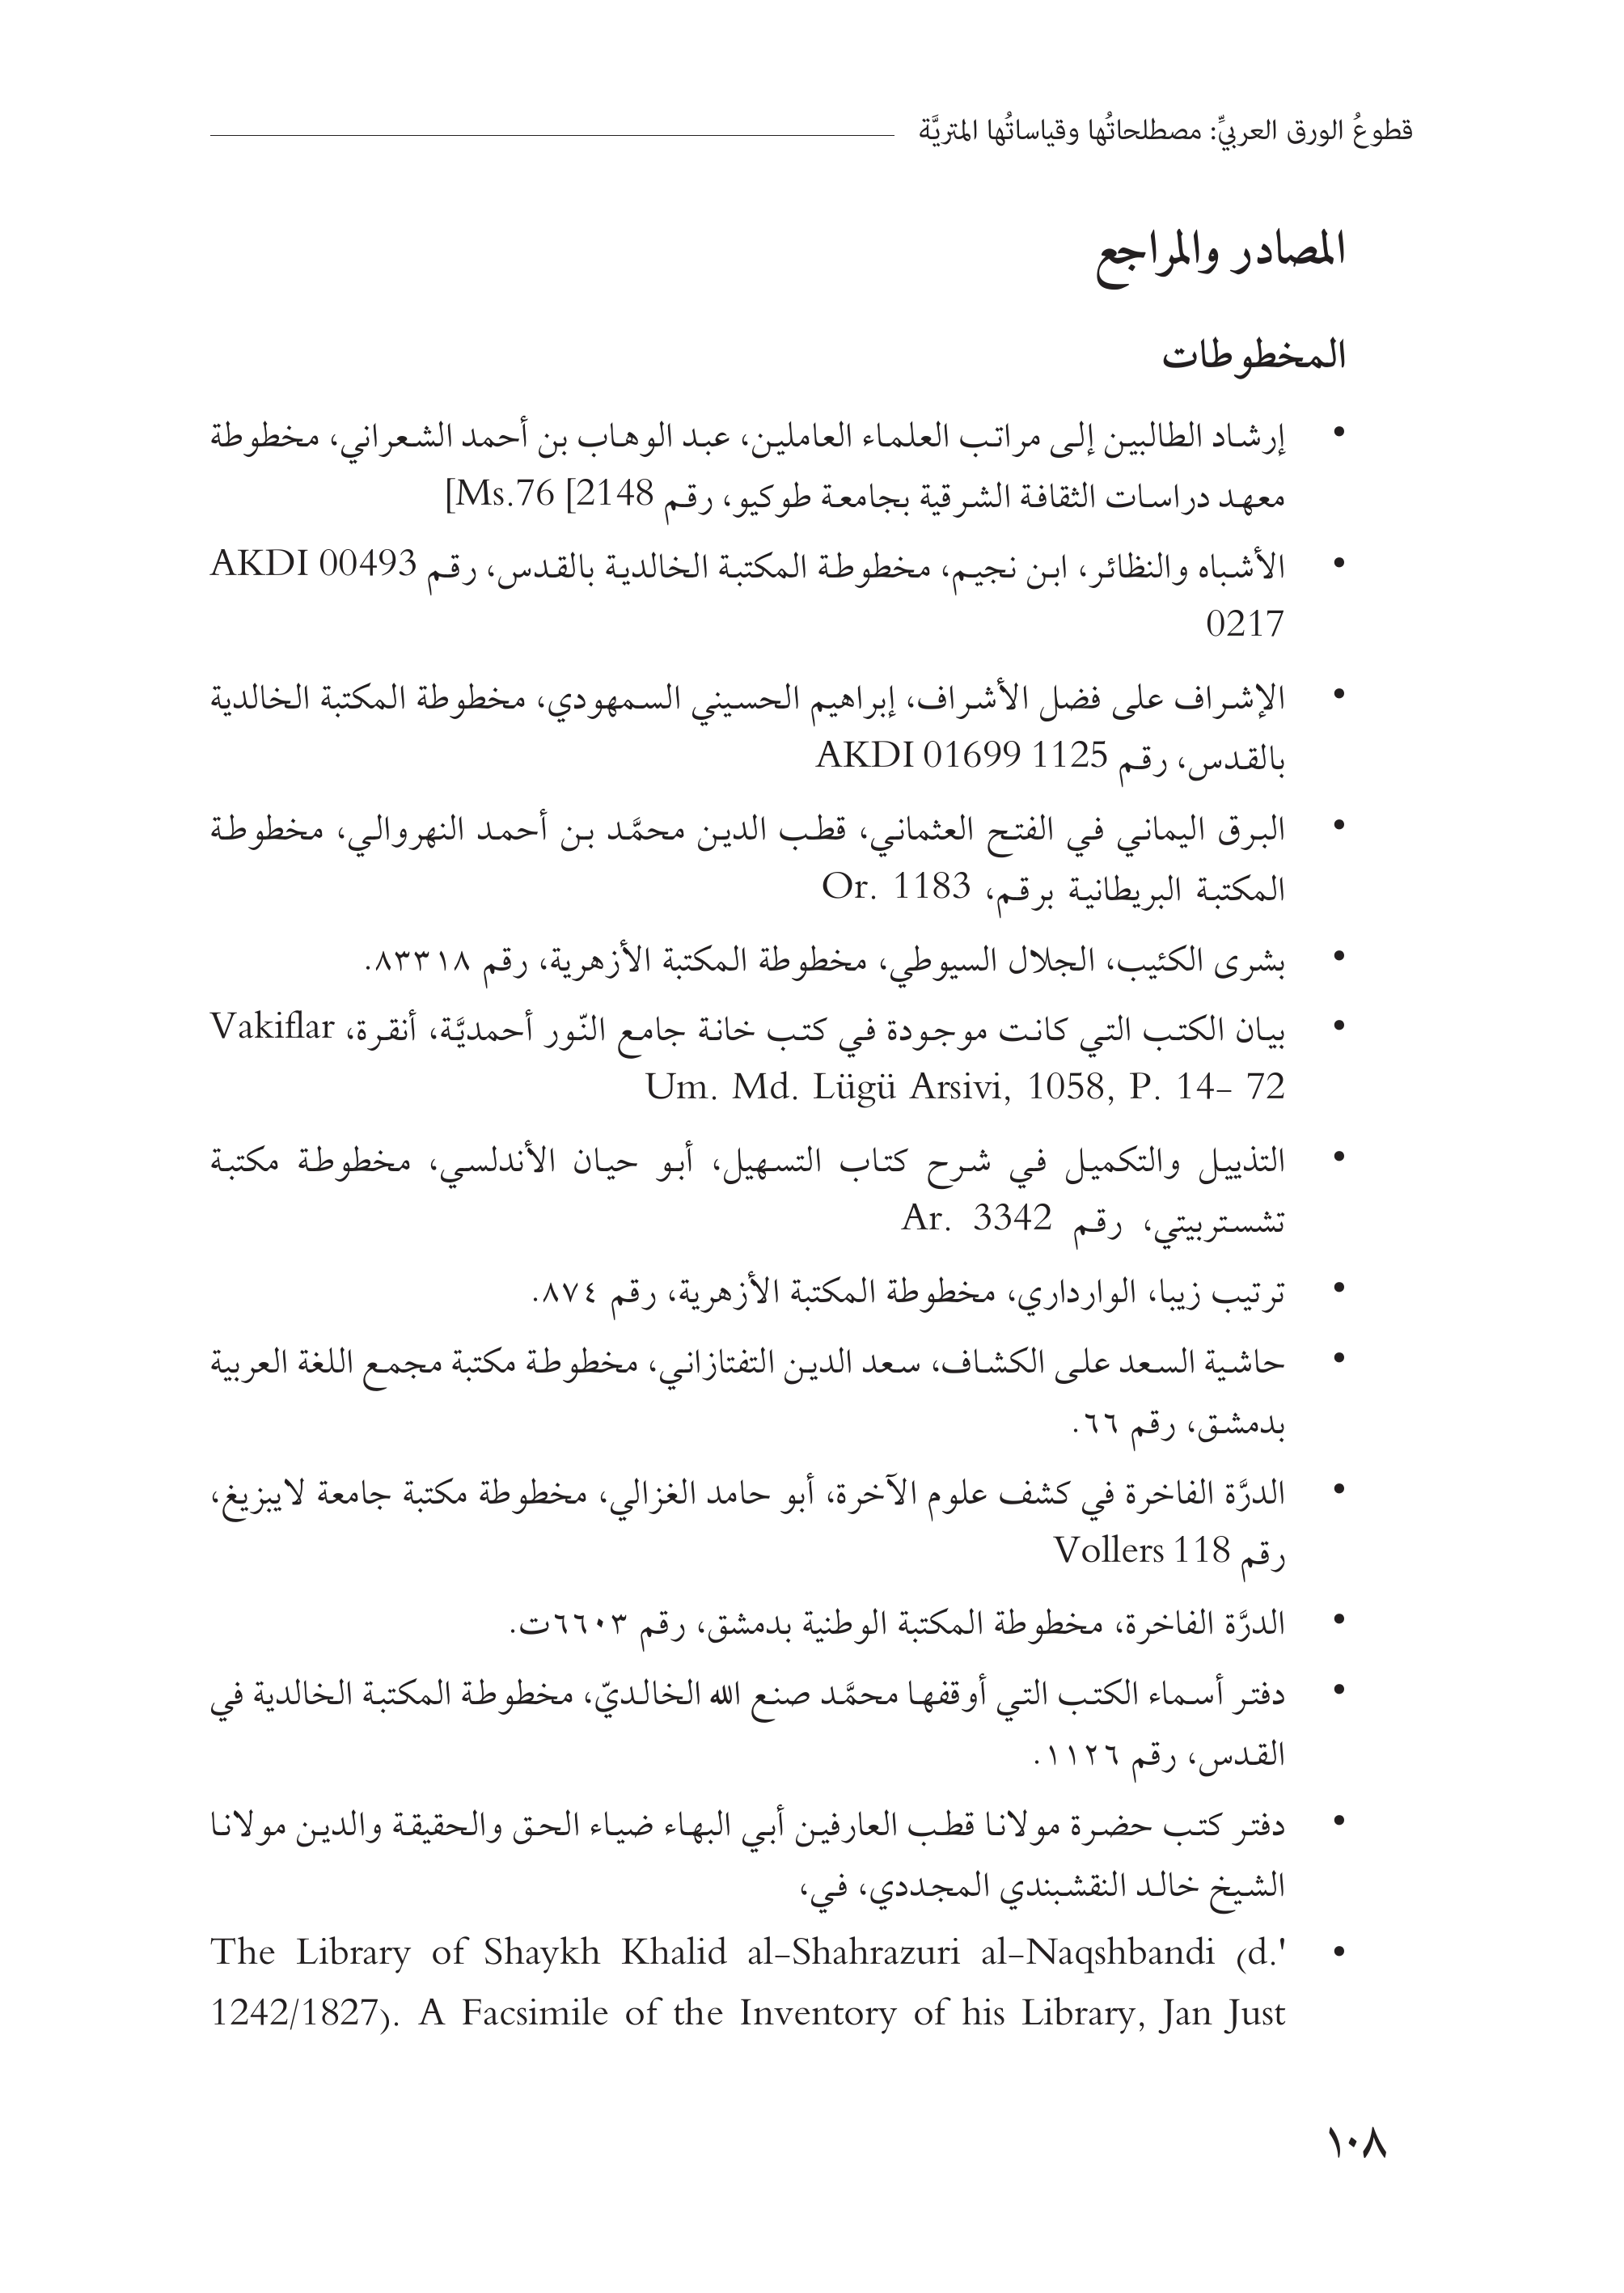 قطوعُ الورق العربيِّ: مصطلحاتُها وقياساتُها المتريَّة
المصادر والمراجع
المخطوطات
• إرشاد الطالبين إلى مراتب العلماء العاملين، عبد الوهاب بن أحمد الشعراني، مخطوطة
معهد دراسات الثقافة الشرقية بجامعة طوكيو، رقم 2148] Ms.76]
• الأشباه والنظائر، ابن نجيم، مخطوطة المكتبة الخالدية بالقدس، رقم AKDI 00493
0217
• الإشراف على فضل الأشراف، إبراهيم الحسيني السمهودي، مخطوطة المكتبة الخالدية
بالقدس، رقم AKDI 01699 1125
• البرق اليماني في الفتح العثماني، قطب الدين محمَّد بن أحمد النهروالي، مخطوطة
المكتبة البريطانية برقم، Or. 1183
• بشرى الكئيب، الجلال السيوطي، مخطوطة المكتبة الأزهرية، رقم ٨٣٣١٨.
• بيان الكتب التي كانت موجودة في كتب خانة جامع النّور أحمديَّة، أنقرة، Vakiflar
Um. Md. Lügü Arsivi, 1058, P. 14- 72
• التذييل والتكميل في شرح كتاب التسهيل، أبو حيان الأندلسي، مخطوطة مكتبة
تشستربيتي، رقم Ar. 3342
• ترتيب زيبا، الوارداري، مخطوطة المكتبة الأزهرية، رقم ٨٧٤.
• حاشية السعد على الكشاف، سعد الدين التفتازاني، مخطوطة مكتبة مجمع اللغة العربية
بدمشق، رقم ٦٦.
• الدرَّة الفاخرة في كشف علوم الآخرة، أبو حامد الغزالي، مخطوطة مكتبة جامعة لايبزيغ،
رقم Vollers 118
• الدرَّة الفاخرة، مخطوطة المكتبة الوطنية بدمشق، رقم ٦٦٠٣ت.
• دفتر أسماء الكتب التي أوقفها محمَّد صنع الله الخالديّ، مخطوطة المكتبة الخالدية في
القدس، رقم ١١٢٦.
• دفتر كتب حضرة مولانا قطب العارفين أبي البهاء ضياء الحق والحقيقة والدين مولانا
الشيخ خالد النقشبندي المجددي، في،
• The Library of Shaykh Khalid al-Shahrazuri al-Naqshbandi (d.'
1242/1827). A Facsimile of the Inventory of his Library, Jan Just
١٠٨